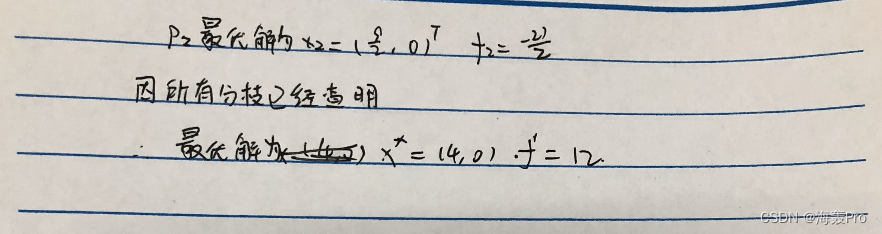 P₂最优解为 x₂ = (9/2, 0)ᵀ f₂ = -27/2
因所有分枝已经查明
∴ 最优解为 x* = (4,0) . f* = 12.
CSDN @海轰Pro